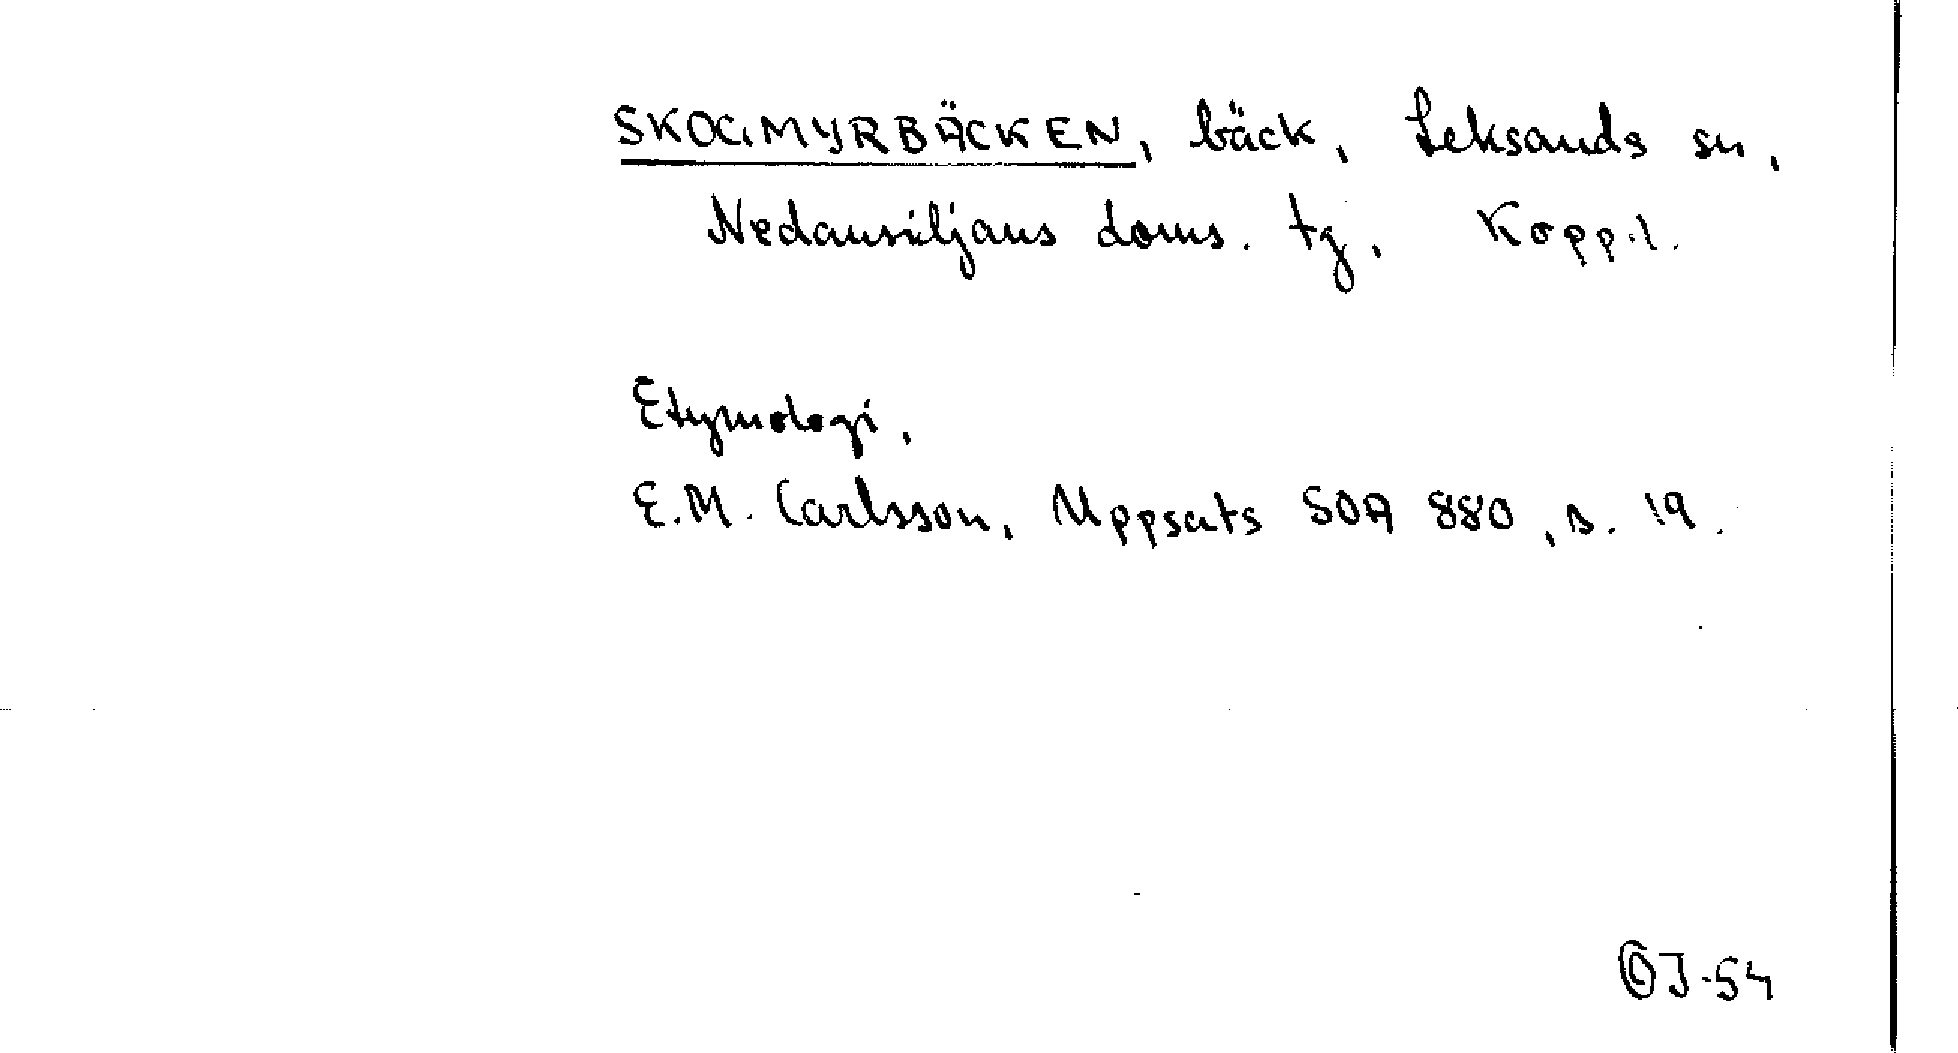 SKOGMYRBÄCKEN, bäck, Leksands sn,
Nedansiljans doms. tg, Kopp.l.
Etymologi.
E.M. Carlsson, Uppsats SOA 880, s. 19.
J-54